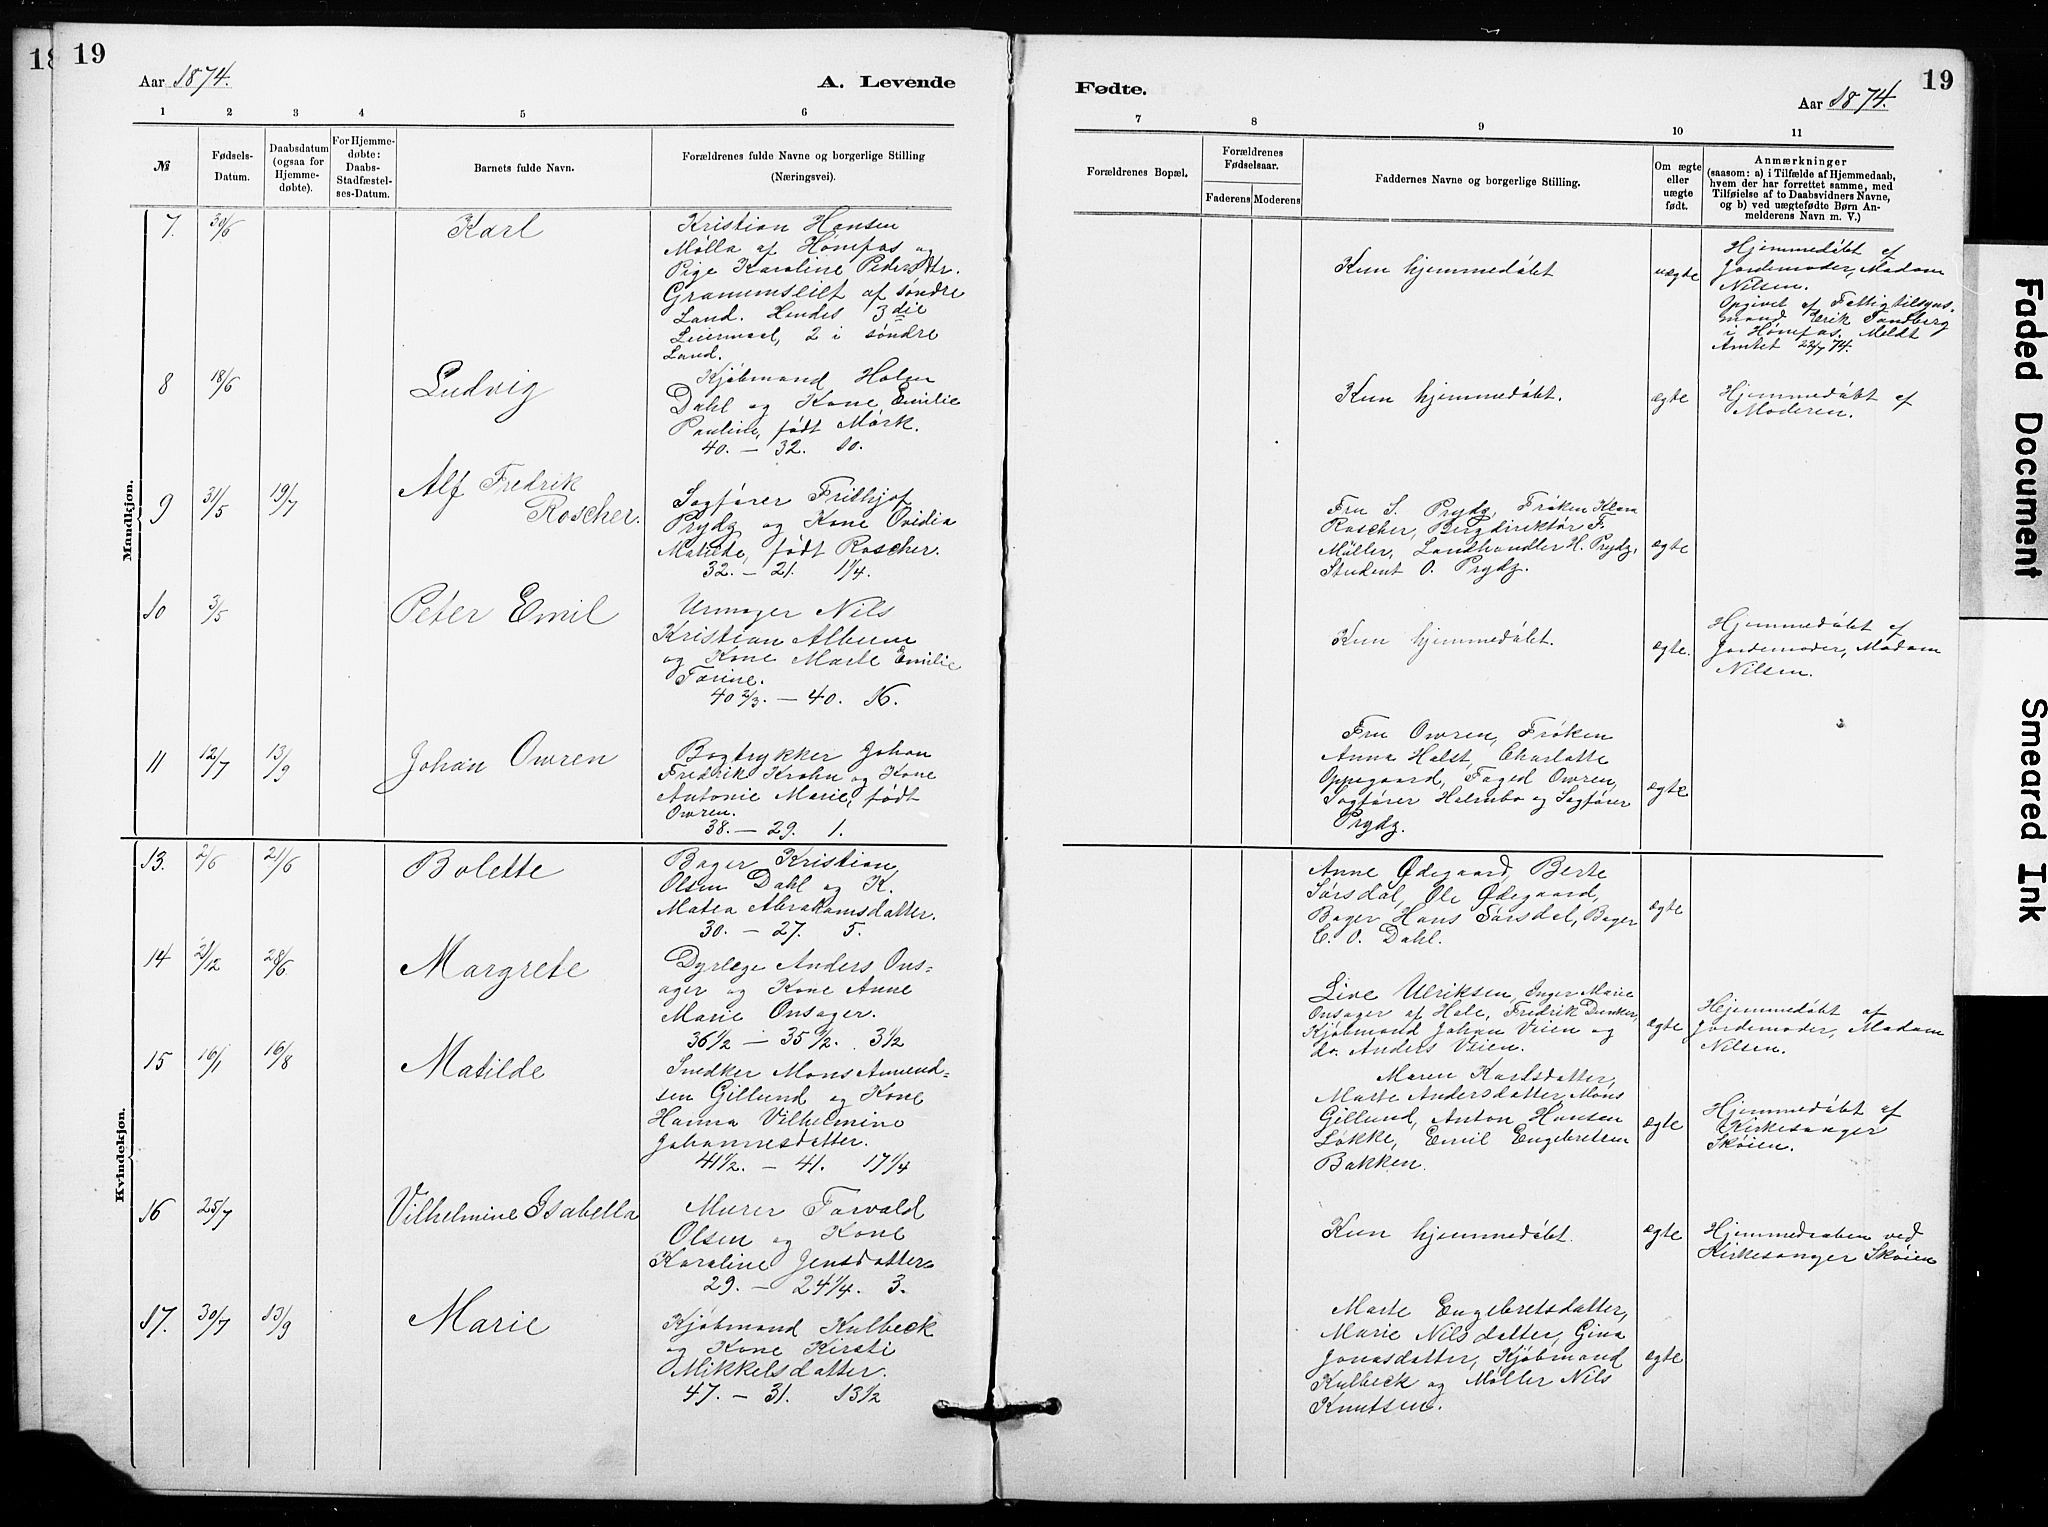 18
19
Aar 1874.
A. Levende
1 2 3 4 5 6
№
Fødsels-
Datum.
Daabsdatum
(ogsaa for
Hjemme-
døbte).
For Hjemme-
døbte:
Daabs-
Stadfæstel-
ses-Datum.
Barnets fulde Navn.
Forældrenes fulde Navne og borgerlige Stilling
(Næringsvei).
Mandkjøn.
7. 30/6 Karl
Kristian Hansen
Mølla af Hønefos og
Pige Karoline Pedersdtr.
Granumseiet af søndre
Land. Hendes 3die
Leiermaal, 2 i søndre
Land.
8 18/6 Ludvig
Kjøbmand Holm
Dahl og Kone Emilie
Pauline, født Mørk.
40. — 32. 10.
9 31/5 19/7 Alf Fredrik
Roscher.
Sagfører Frithjof
Prydz og Kone Ovidia
Matilde, født Roscher.
32. — 21. 1 1/4.
10 3/5 Peter Emil
Urmager Nils
Kristian Album
og Kone Marte Emilie
Torine.
40 2/3. — 40. 16.
11 12/7 13/9 Johan Owren
Bogtrykker Johan
Fredrik Krohn og Kone
Antonie Marie, født
Owren.
38. — 29. 1.
Kvindekjøn.
13. 2/6 21/6 Bolette
Bager Kristian
Olsen Dahl og K.
Matea Abrahamsdatter.
30. — 27. 5.
14 21/12 28/6 Margrete
Dyrlæge Anders Ons-
ager og Kone Anne
Marie Onsager.
36 1/2 — 35 1/2. 3 1/2
15 16/1 16/8 Matilde
Snedker Mons Amund-
sen Gillund og Kone
Hanna Vilhelmine
Johannesdatter.
41 1/2. — 41. 17 1/4
16 25/7 Vilhelmine Isabella
Murer Torvald
Olsen og Kone
Karoline Jensdatter
29. — 24 1/4. 3.
17. 30/7 13/9 Marie
Kjøbmand Kulbeck
og Kone Kirsti
Mikkelsdatter.
47. — 31. 13 1/2
Fødte.
19
Aar 1874.
7 8 9 10 11
Forældrenes Bopæl.
Forældrenes
Fødselsaar.
Faderens Moderens
Faddernes Navne og borgerlige Stilling.
Om ægte
eller
uægte
født.
Anmærkninger
(saasom: a) i Tilfælde af Hjemmedaab,
hvem der har forrettet samme, med
Tilføielse af to Daabsvidners Navne,
og b) ved uægtefødte Børn An-
melderens Navn m. V.)
Kun hjemmedøbt
uægte
Hjemmedøbt af
Jordemoder, Madam
Nilsen.
Opgivet af Fattigtilsyns-
mand Erik Tandberg
i Hønefos. Meldt
Amtet 22/7 74.
Kun hjemmedøbt.
ægte
Hjemmedøbt af
Moderen.
Fru S. Prydz, Frøken Klara
Roscher, Bergdirektør F.
Møller, Landhandler H. Prydz,
Student O. Prydz.
ægte
Kun hjemmedøbt.
ægte.
Hjemmedøbt af
Jordemoder, Madam
Nilsen.
Fru Owren, Frøken
Anna Holst, Charlotte
Oppegaard, Foged Owren,
Sagfører Holmbo og Sagfører
Prydz.
ægte
Anne Ødegaard, Berte
Sørsdal, Ole Ødegaard,
Bager Hans Sørsdal, Bager
C. O. Dahl.
ægte
Live Ulriksen, Inger Marie
Onsager af Hole, Fredrik Dunker,
Kjøbmand Johan Veien og
do. Anders Veien.
ægte
Hjemmedøbt af
Jordemoder, Madam
Nilsen.
Maren Karlsdatter,
Marte Andersdatter, Mons
Gillund, Anton Hansen
Løkke, Emil Engebretsen
Bakken.
ægte
Hjemmedøbt af
Kirkesanger
Skøien.
Kun hjemmedøbt.
ægte
Hjemmedaaben ved
Kirkesanger Skøien
Marte Engebretsdatter,
Marie Nilsdatter, Gina
Jonasdatter, Kjøbmand
Kulbeck og Møller Nils
Knutsen.
ægte
Faded Document
Smeared Ink